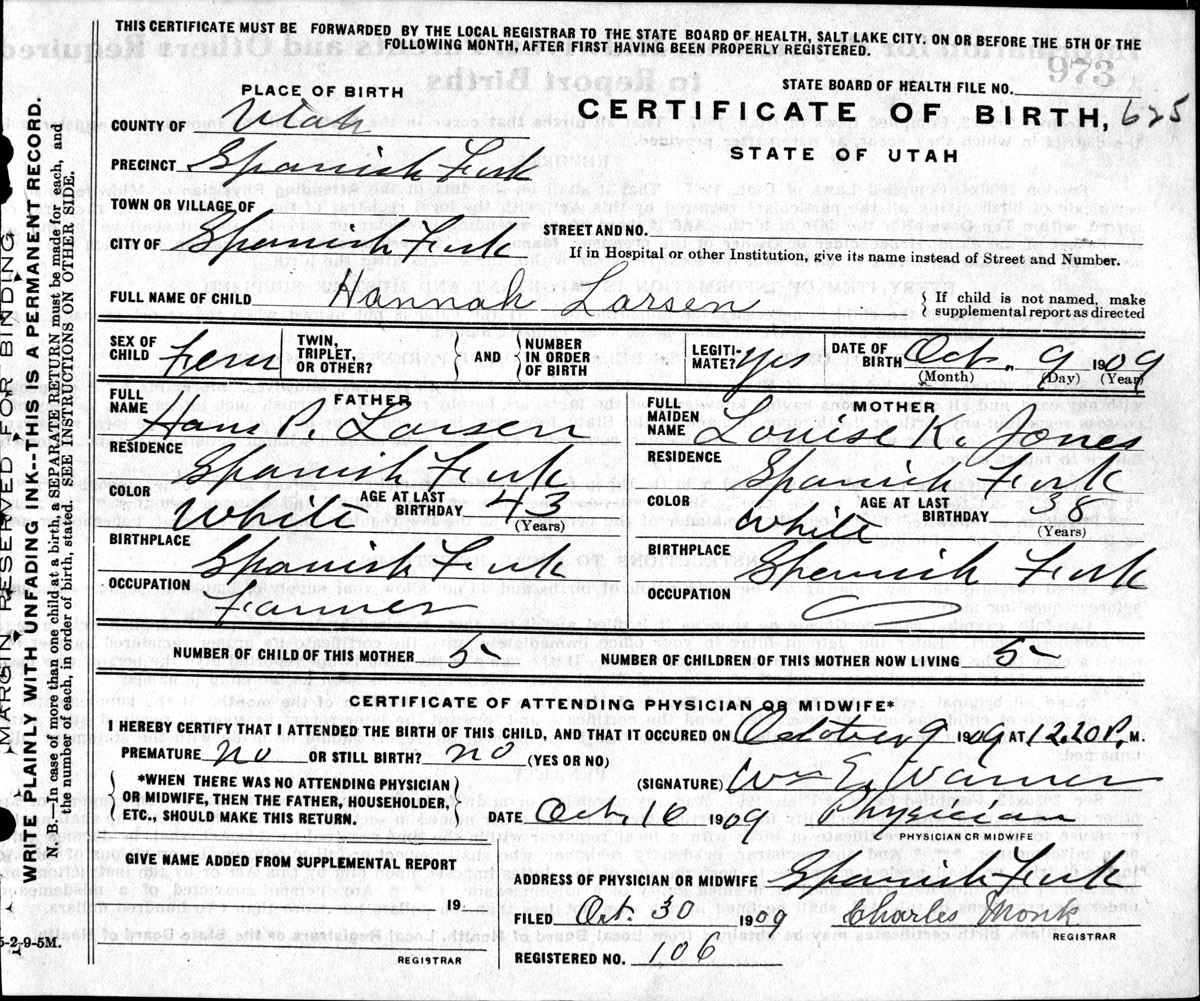 THIS CERTIFICATE MUST BE FORWARDED BY THE LOCAL REGISTRAR TO THE STATE BOARD OF HEALTH, SALT LAKE CITY, ON OR BEFORE THE 5TH OF THE
FOLLOWING MONTH, AFTER FIRST HAVING BEEN PROPERLY REGISTERED.
973
STATE BOARD OF HEALTH FILE NO.
PLACE OF BIRTH
CERTIFICATE OF BIRTH, 625
STATE OF UTAH
COUNTY OF Utah
PRECINCT Spanish Fork
TOWN OR VILLAGE OF
CITY OF Spanish Fork
STREET AND NO.
If in Hospital or other Institution, give its name instead of Street and Number.
FULL NAME OF CHILD Hannah Larsen
If child is not named, make
supplemental report as directed
SEX OF CHILD Fem
TWIN, TRIPLET, OR OTHER?
AND
NUMBER IN ORDER OF BIRTH
LEGITI-MATE? yes
DATE OF BIRTH Oct. 9 1909
(Month) (Day) (Year)
FATHER
FULL NAME Hans P. Larsen
RESIDENCE Spanish Fork
COLOR White AGE AT LAST BIRTHDAY 43
(Years)
BIRTHPLACE Spanish Fork
OCCUPATION Farmer
MOTHER
FULL MAIDEN NAME Louise R. Jones
RESIDENCE Spanish Fork
COLOR White AGE AT LAST BIRTHDAY 38
(Years)
BIRTHPLACE Spanish Fork
OCCUPATION
NUMBER OF CHILD OF THIS MOTHER 5 NUMBER OF CHILDREN OF THIS MOTHER NOW LIVING 5
CERTIFICATE OF ATTENDING PHYSICIAN OR MIDWIFE*
I HEREBY CERTIFY THAT I ATTENDED THE BIRTH OF THIS CHILD, AND THAT IT OCCURED ON October 9 1909 AT 12.20 P. M.
PREMATURE no OR STILL BIRTH? no (YES OR NO)
*WHEN THERE WAS NO ATTENDING PHYSICIAN
OR MIDWIFE, THEN THE FATHER, HOUSEHOLDER,
ETC., SHOULD MAKE THIS RETURN.
(SIGNATURE) Wm E. Warner
DATE Oct. 1909 Physician
PHYSICIAN OR MIDWIFE
GIVE NAME ADDED FROM SUPPLEMENTAL REPORT
19
REGISTRAR
ADDRESS OF PHYSICIAN OR MIDWIFE Spanish Fork
FILED Oct. 30 1909 Charles Monk
REGISTRAR
REGISTERED NO. 106
MARGIN RESERVED FOR BINDING
WRITE PLAINLY WITH UNFADING INK--THIS IS A PERMANENT RECORD.
N. B.—In case of more than one child at a birth, a SEPARATE RETURN must be made for each, and
the number of each, in order of birth, stated. SEE INSTRUCTIONS ON OTHER SIDE.
5-2,9-5M.